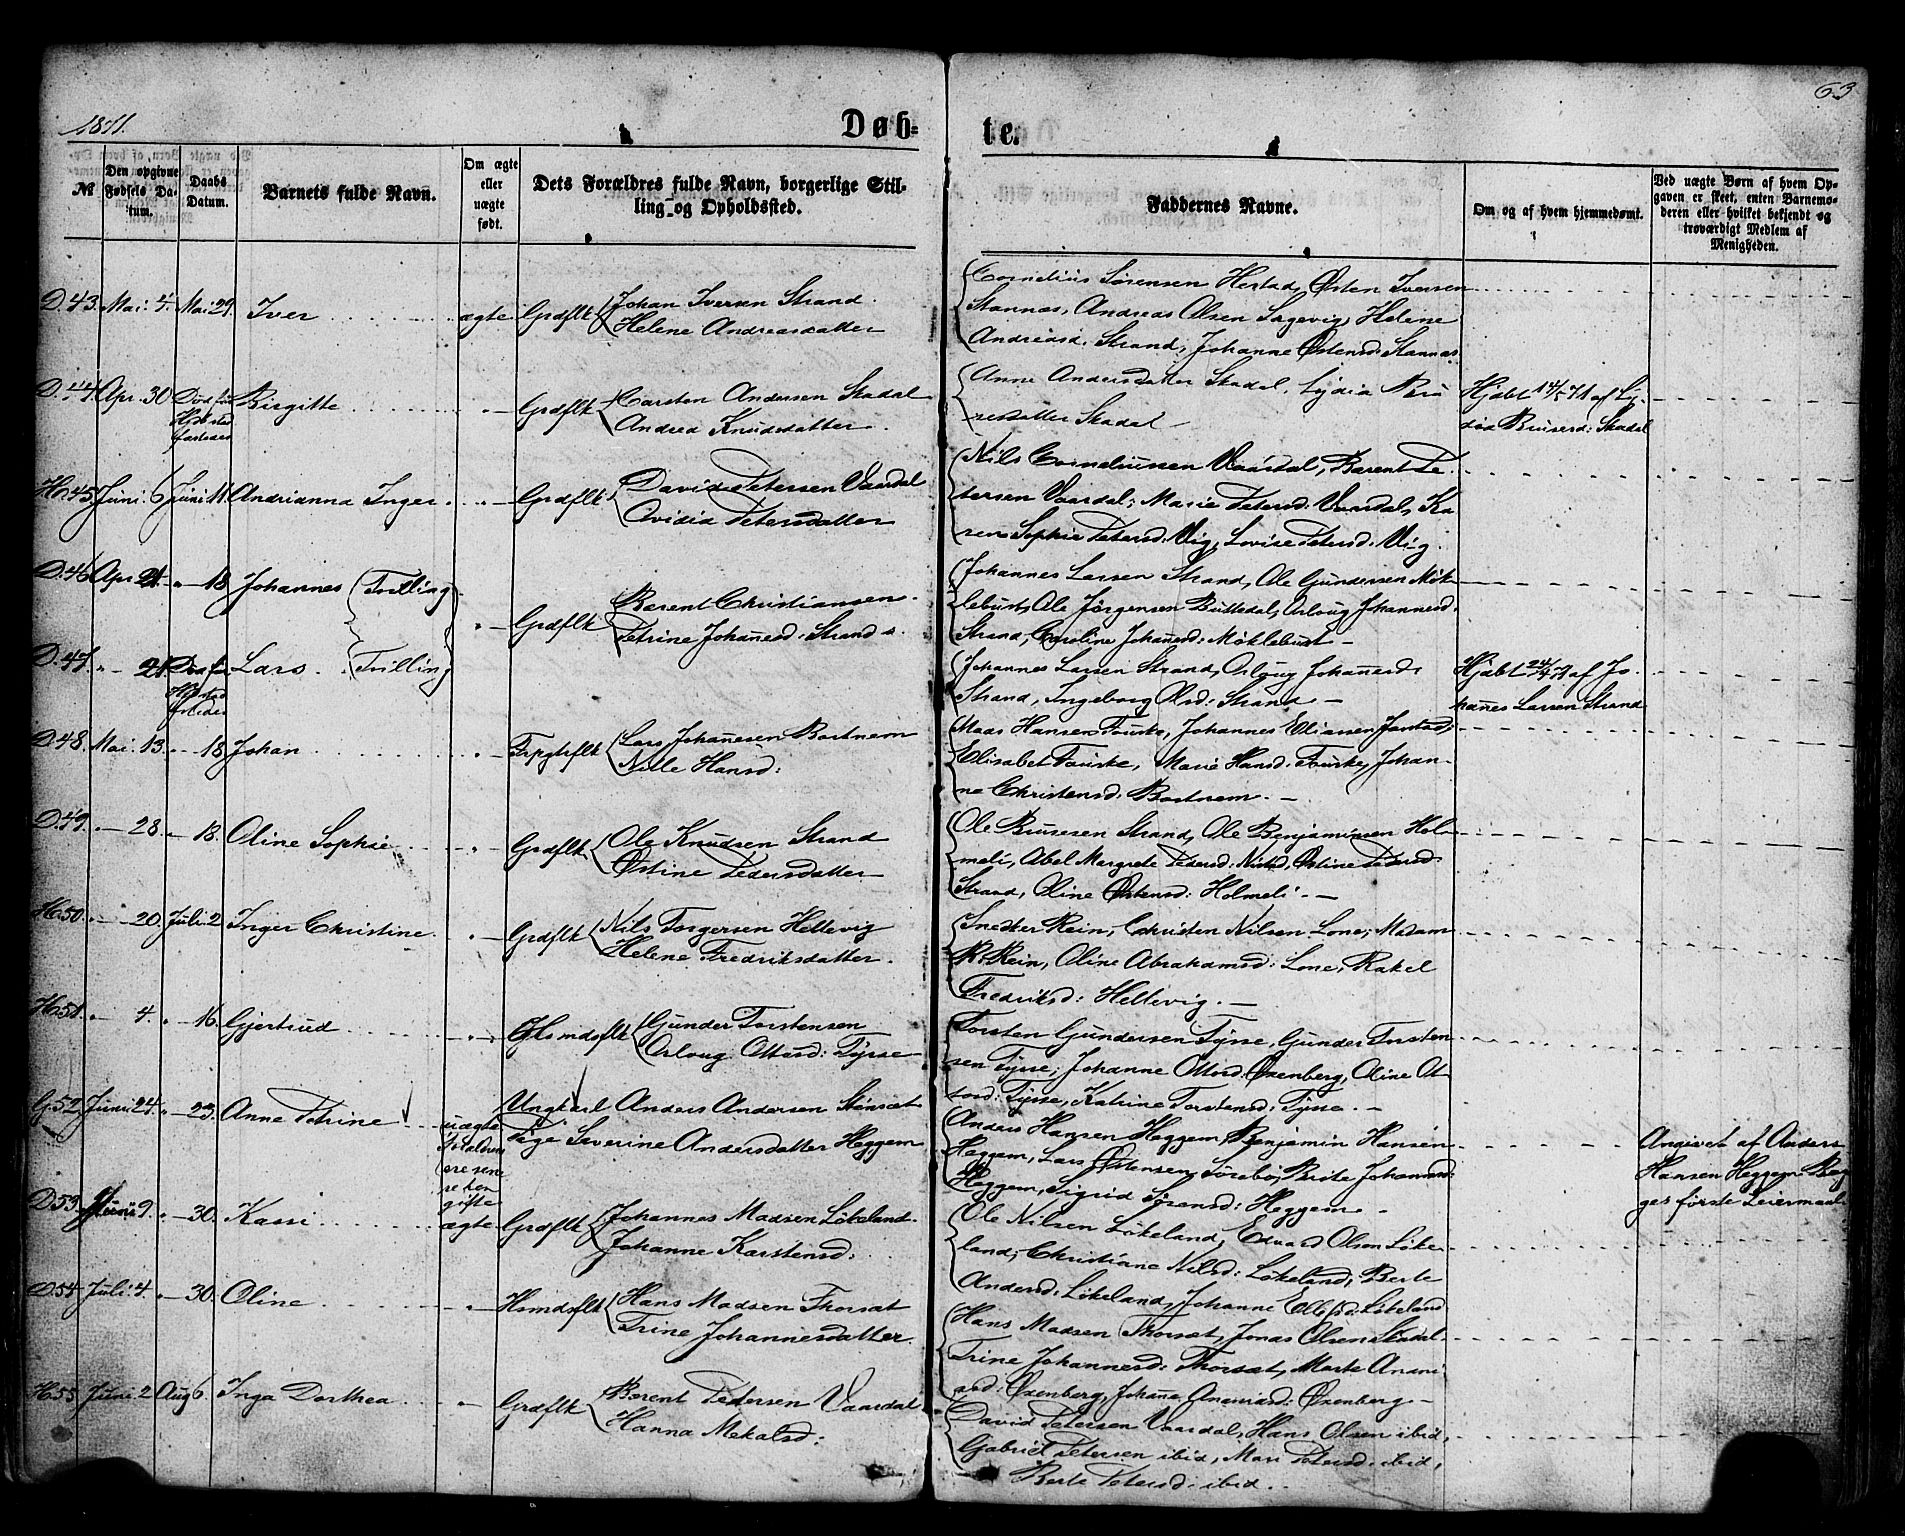 1871.
Døb-
te.
63
№
Den opgivne Fødsels Datum.
Daabs Datum.
Barnets fulde Navn.
Om ægte eller uægte født.
Dets Forældres fulde Navn, borgerlige Stilling og Opholdssted.
Faddernes Navne.
Om og af hvem hjemmedøbt.
Ved uægte Børn af hvem Opgaven er skeet, enten Barnemoderen eller hvilket bekjendt og troværdigt Medlem af Menigheden.
D. 43. Mai: 4. Mai 29. Iver ægte Grdflk Johan Iversen Strand.
Helene Andreasdatter
Cornelius Sørensen Herstad, Østen Iversen
Stannas, Andreas Olsen Sagevig, Helene
Andreasd: Strand, Johanne Østensd: Stannas
D. 44. Apr. 30 Birgitte " Grdflk Carsten Andersen Skadal
Andrea Knudsdatter
Anne Andersdatter Skadal, Lydia
Skadal
Hjdbt 14/5 71 af Ly-
dia Skadal
H. 45. Juni. 6 Juni 11. Andrianna Inger " Grdflk David Petersen Vaardal
Ovidia Petersdatter
Nils Corneliussen Vaardal, Berent Pe-
tersen Vaardal, Marie Petersd: Vaardal, Ka-
ren Sophie Petersd: Vig, Lovise Petersd: Vig.
D. 46 Apr 21. " 18 Johannes (Tvilling) " Grdflk Berent Christiansen
Petrine Johanesd: Strand
Johannes Larsen Strand, Ole Gundersen Møk-
lebust, Ole Jørgensen Buttedal, Asloug Johannesd:
Strand, Caroline Johanesd: Møklebust
D. 47. " 21. Lars (Tvilling)
Johannes Larsen Strand, Asloug Johanesd:
Strand, Ingeborg Olsd: Strand
Hjdbt 24/4 71 af Jo-
hanes Larsen Strand
D. 48. Mai. 13. " 18. Johan " Lars Johanesen Bortnem
Nille Hansd:
Mads Hansen Fauske, Johannes Eliassen
Elisabet Fauske, Marie Hansd: Fauske, Johan-
ne Christensd: Bortnem.
D. 49. " 28. " 18. Oline Sophie " Grdflk Ole Knudsen Strand
Østine Pedersdatter
Ole Brusesen Strand, Ole Benjaminsen Hol-
meli, Abel Margrete Pedersd: Østine Pedersd
Strand, Oline Østensd: Holmeli.
H. 50. " 20. Juli 2 Inger Christine " Grdflk Nils Torgersen Hellevig
Helene Fredriksdatter.
Snedker Rein, Christen Nilsen Lone, Madam
R. Rein, Oline Abrahamsd: Lone, Rakel
Fredriksd: Hellevig.
H. 51. " 4. " 16. Gjertrud " Hsmdsflk Gunder Torstensen
Asloug Ottosd: Tysse
Torsten Gundersen Tysse, Gunder Torsten-
sen Tysse, Johanne Ottosd: Oxenberg, Oline Ot-
tosd: Tysse, Katrine Torstensd: Tysse.
G. 52. Juni 24. " 23. Anne Petrine uægte Ungkarl Anders Andersen Stensæt
Pige Severine Andersdatter Heggem
Anders Hansen Heggem, Benjamin Hansen
Heggem, Lars Østensen Sørebø, Brite Johannesd:
Heggem, Sigrid Sørensd: Heggem
Angivet af Anders
Hansen Heggem. Beg-
ges første Leiermaal.
D. 53. 9. " 30. Kassi ægte Grdflk Johannes Madsen Løkeland.
Johanne Karstensd:
Ole Nilsen Løkeland, Edvard Olsen Løke-
land, Christiane Nilsd: Løkeland, Berte
Andersd: Løkeland, Johanne Ellefsd: Løkeland
D. 54 Juli 4. " 30. Oline " Hsmdsflk Hans Madsen Thorsæt
Trine Johannesdatter.
Hans Madsen Thorsæt, Jonas Olsen Skadal
Trine Johannesd: Thorsæt, Marte
Oxenberg, Johane Oxenberg
H. 55. Juni 2. Aug 6. Inga Dorthea " Grdflk Berent Petersen Vaardal
Hanna Mekalsd:
David Petersen Vaardal, Hans Olsen ibid,
Gabriel Petersen ibid, Mari Petersd: ibid,
Berte Petersd: ibid.